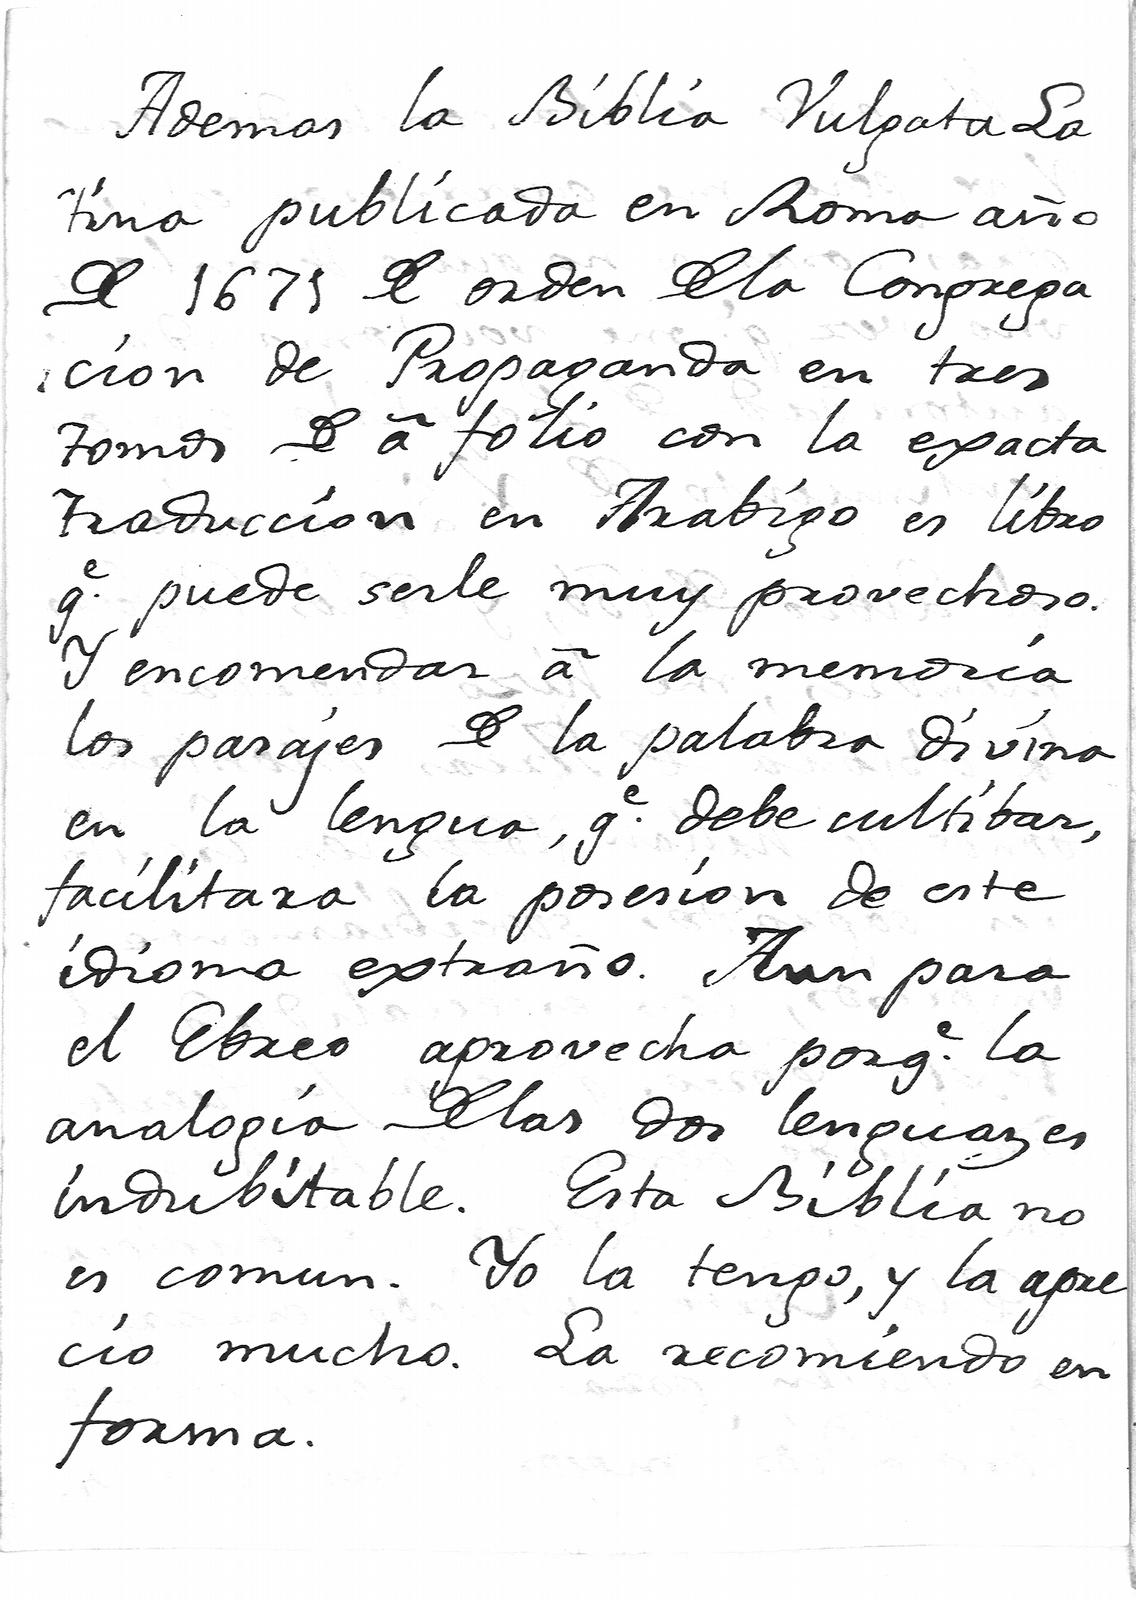 Ademas la Biblia Vulgata La
tina publicada en Roma año
De 1671 De orden Dela Congrega
cion de Propaganda en tres
tomos De ã folio con la exacta
traduccion en Arabigo es libro
q.e puede serle muy provechoso.
Y encomendar ã la memoria
los parajes De la palabra divina
en la lengua, q.e debe cultibar,
facilitara la posesion de este
idioma extraño. Aun para
el Ebreo aprovecha porq.e la
analogia Delas dos lenguazes
indubitable. Esta Biblia no
es comun. Yo la tengo, y la apre
cio mucho. La recomiendo en
forma.